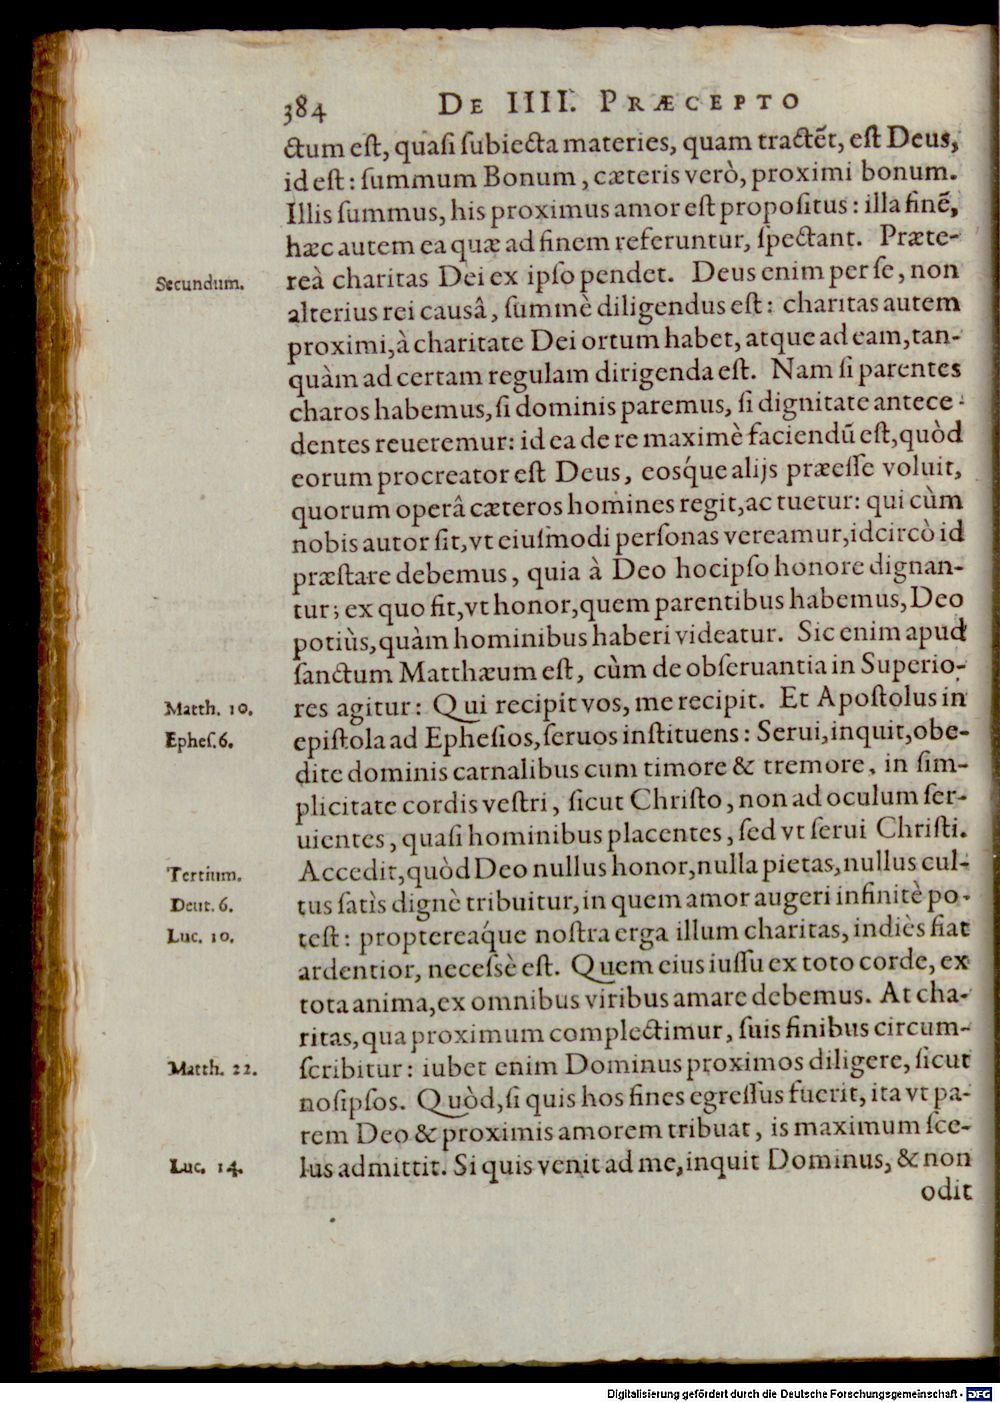 384 DE IIII. PRÆCEPTO
ctum eſt, quaſi ſubiecta materies, quam tractẽt, eſt Deus,
id eſt: ſummum Bonum, cæteris verò, proximi bonum.
Illis ſummus, his proximus amor eſt propoſitus: illa finẽ,
hæc autem ea quæ ad finem referuntur, ſpectant. Præte-
Secundum.
reà charitas Dei ex ipſo pendet. Deus enim per ſe, non
alterius rei causâ, ſummè diligendus eſt: charitas autem
proximi, à charitate Dei ortum habet, atque ad eam, tan-
quàm ad certam regulam dirigenda eſt. Nam ſi parentes
charos habemus, ſi dominis paremus, ſi dignitate antece-
dentes reueremur: id ea de re maximè faciendũ eſt, quòd
eorum procreator eſt Deus, eosq́ue alijs præeſſe voluit,
quorum operâ cæteros homines regit, ac tuetur: qui cùm
nobis autor ſit, vt eiuſmodi perſonas vereamur, idcircò id
præſtare debemus, quia à Deo hocipſo honore dignan-
tur; ex quo fit, vt honor, quem parentibus habemus, Deo
potiùs, quàm hominibus haberi videatur. Sic enim apud
ſanctum Matthæum eſt, cùm de obſeruantia in Superio-
Matth. 10.
res agitur: Qui recipit vos, me recipit. Et Apoſtolus in
Epheſ. 6.
epiſtola ad Epheſios, ſeruos inſtituens: Serui, inquit, obe-
dite dominis carnalibus cum timore & tremore, in ſim-
plicitate cordis veſtri, ſicut Chriſto, non ad oculum ſer-
uientes, quaſi hominibus placentes, ſed vt ſerui Chriſti.
Tertium.
Accedit, quòd Deo nullus honor, nulla pietas, nullus cul-
Deut. 6.
tus ſatìs dignè tribuitur, in quem amor augeri infinitè po-
Luc. 10.
teſt: proptereaq́ue noſtra erga illum charitas, indiès fiat
ardentior, neceſsè eſt. Quem eius iuſſu ex toto corde, ex
tota anima, ex omnibus viribus amare debemus. At cha-
ritas, qua proximum complectimur, ſuis finibus circum-
Matth. 22.
ſcribitur: iubet enim Dominus proximos diligere, ſicut
noſipſos. Quòd, ſi quis hos fines egreſſus fuerit, ita vt pa-
rem Deo & proximis amorem tribuat, is maximum ſce-
Luc. 14.
lus admittit. Si quis venit ad me, inquit Dominus, & non
odit
Digitalisierung gefördert durch die Deutsche Forschungsgemeinschaft - DFG